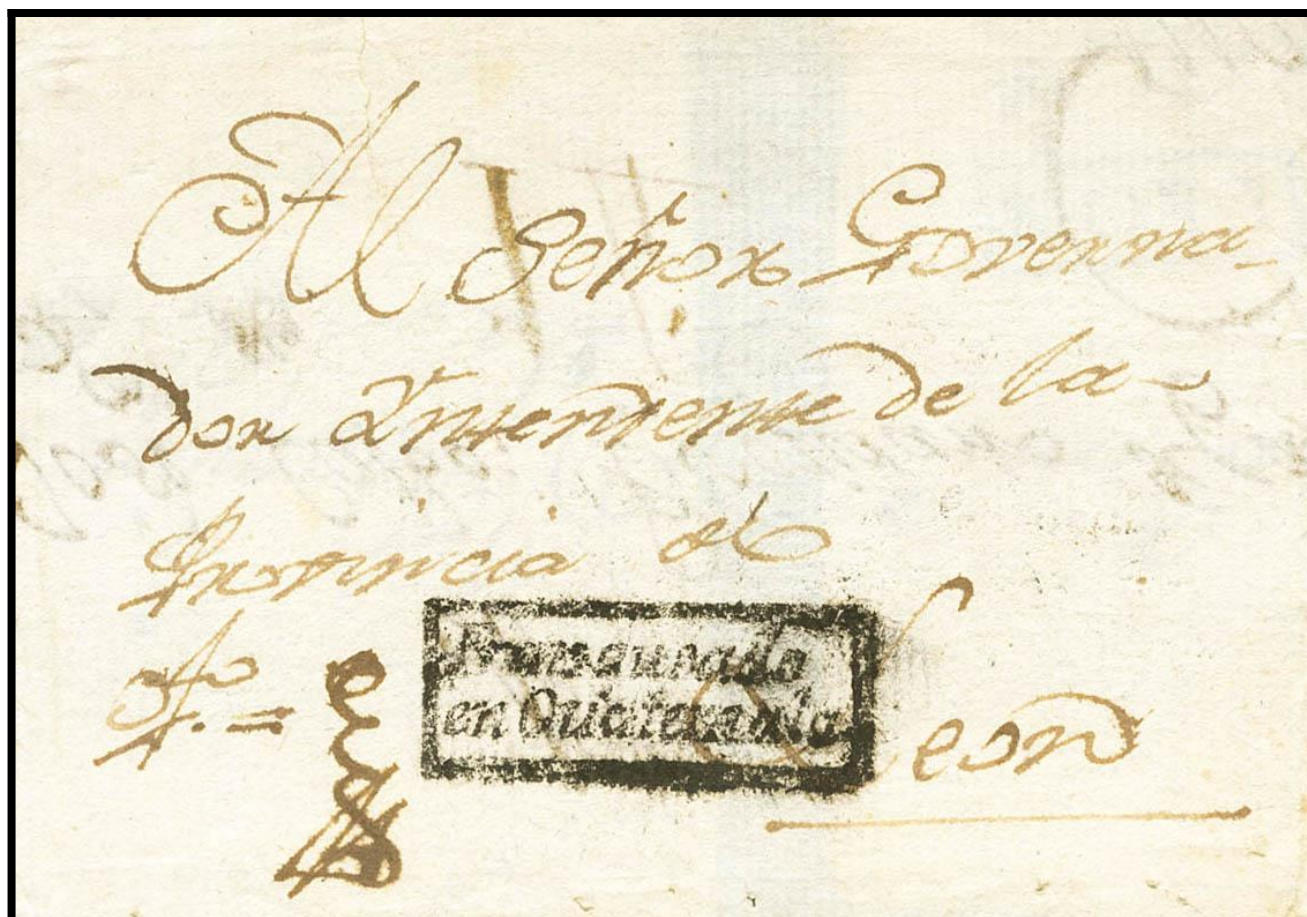 Al Señor Governa-
dor Yntendente de la
Provincia de
Franqueado
en Guatemala
Leon